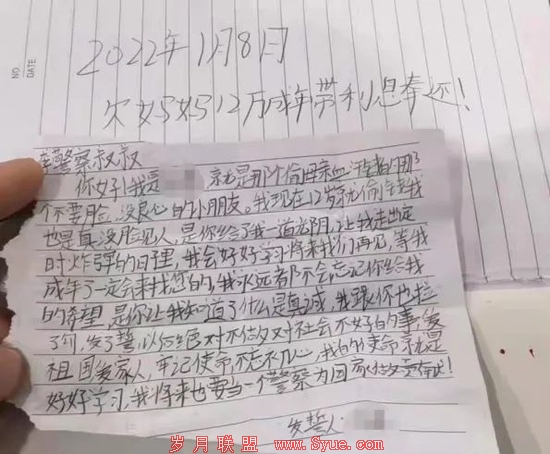 NO
DATE
2022年1月8日
欠妈妈12万成年带利息奉还!
警察叔叔
你好!我是 就是那个偷母亲血汗钱的那
个不要脸,没良心的小朋友。我现在12岁就偷
也是真没脸见人,是你给了我一道光阴,让我走出定
时炸弹的日理,我会好好学习将来我们再见,等我
成年了一定会来找您的,我永远都不会忘记你给我
的希望,是你让我知道了什么是真诚,我跟你也拉
了勾,发了誓以后绝对不做对社会不好的事,爱
祖国爱家人,牢记使命不忘初心,我的使命就是
好好学习,我将来也要当一个警察为国家做贡献!
发誓人:
岁月联盟 www.Syue.com